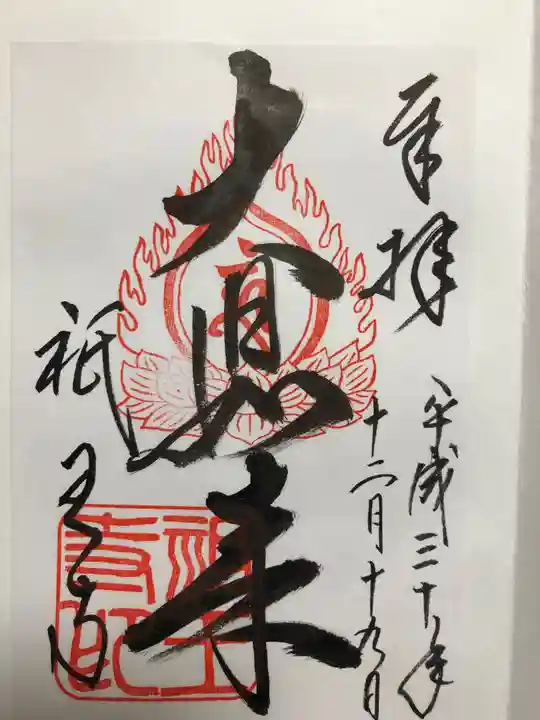 奉拝
平成三十年
十二月十九日
大日如来
祇王寺
祇王
寺印